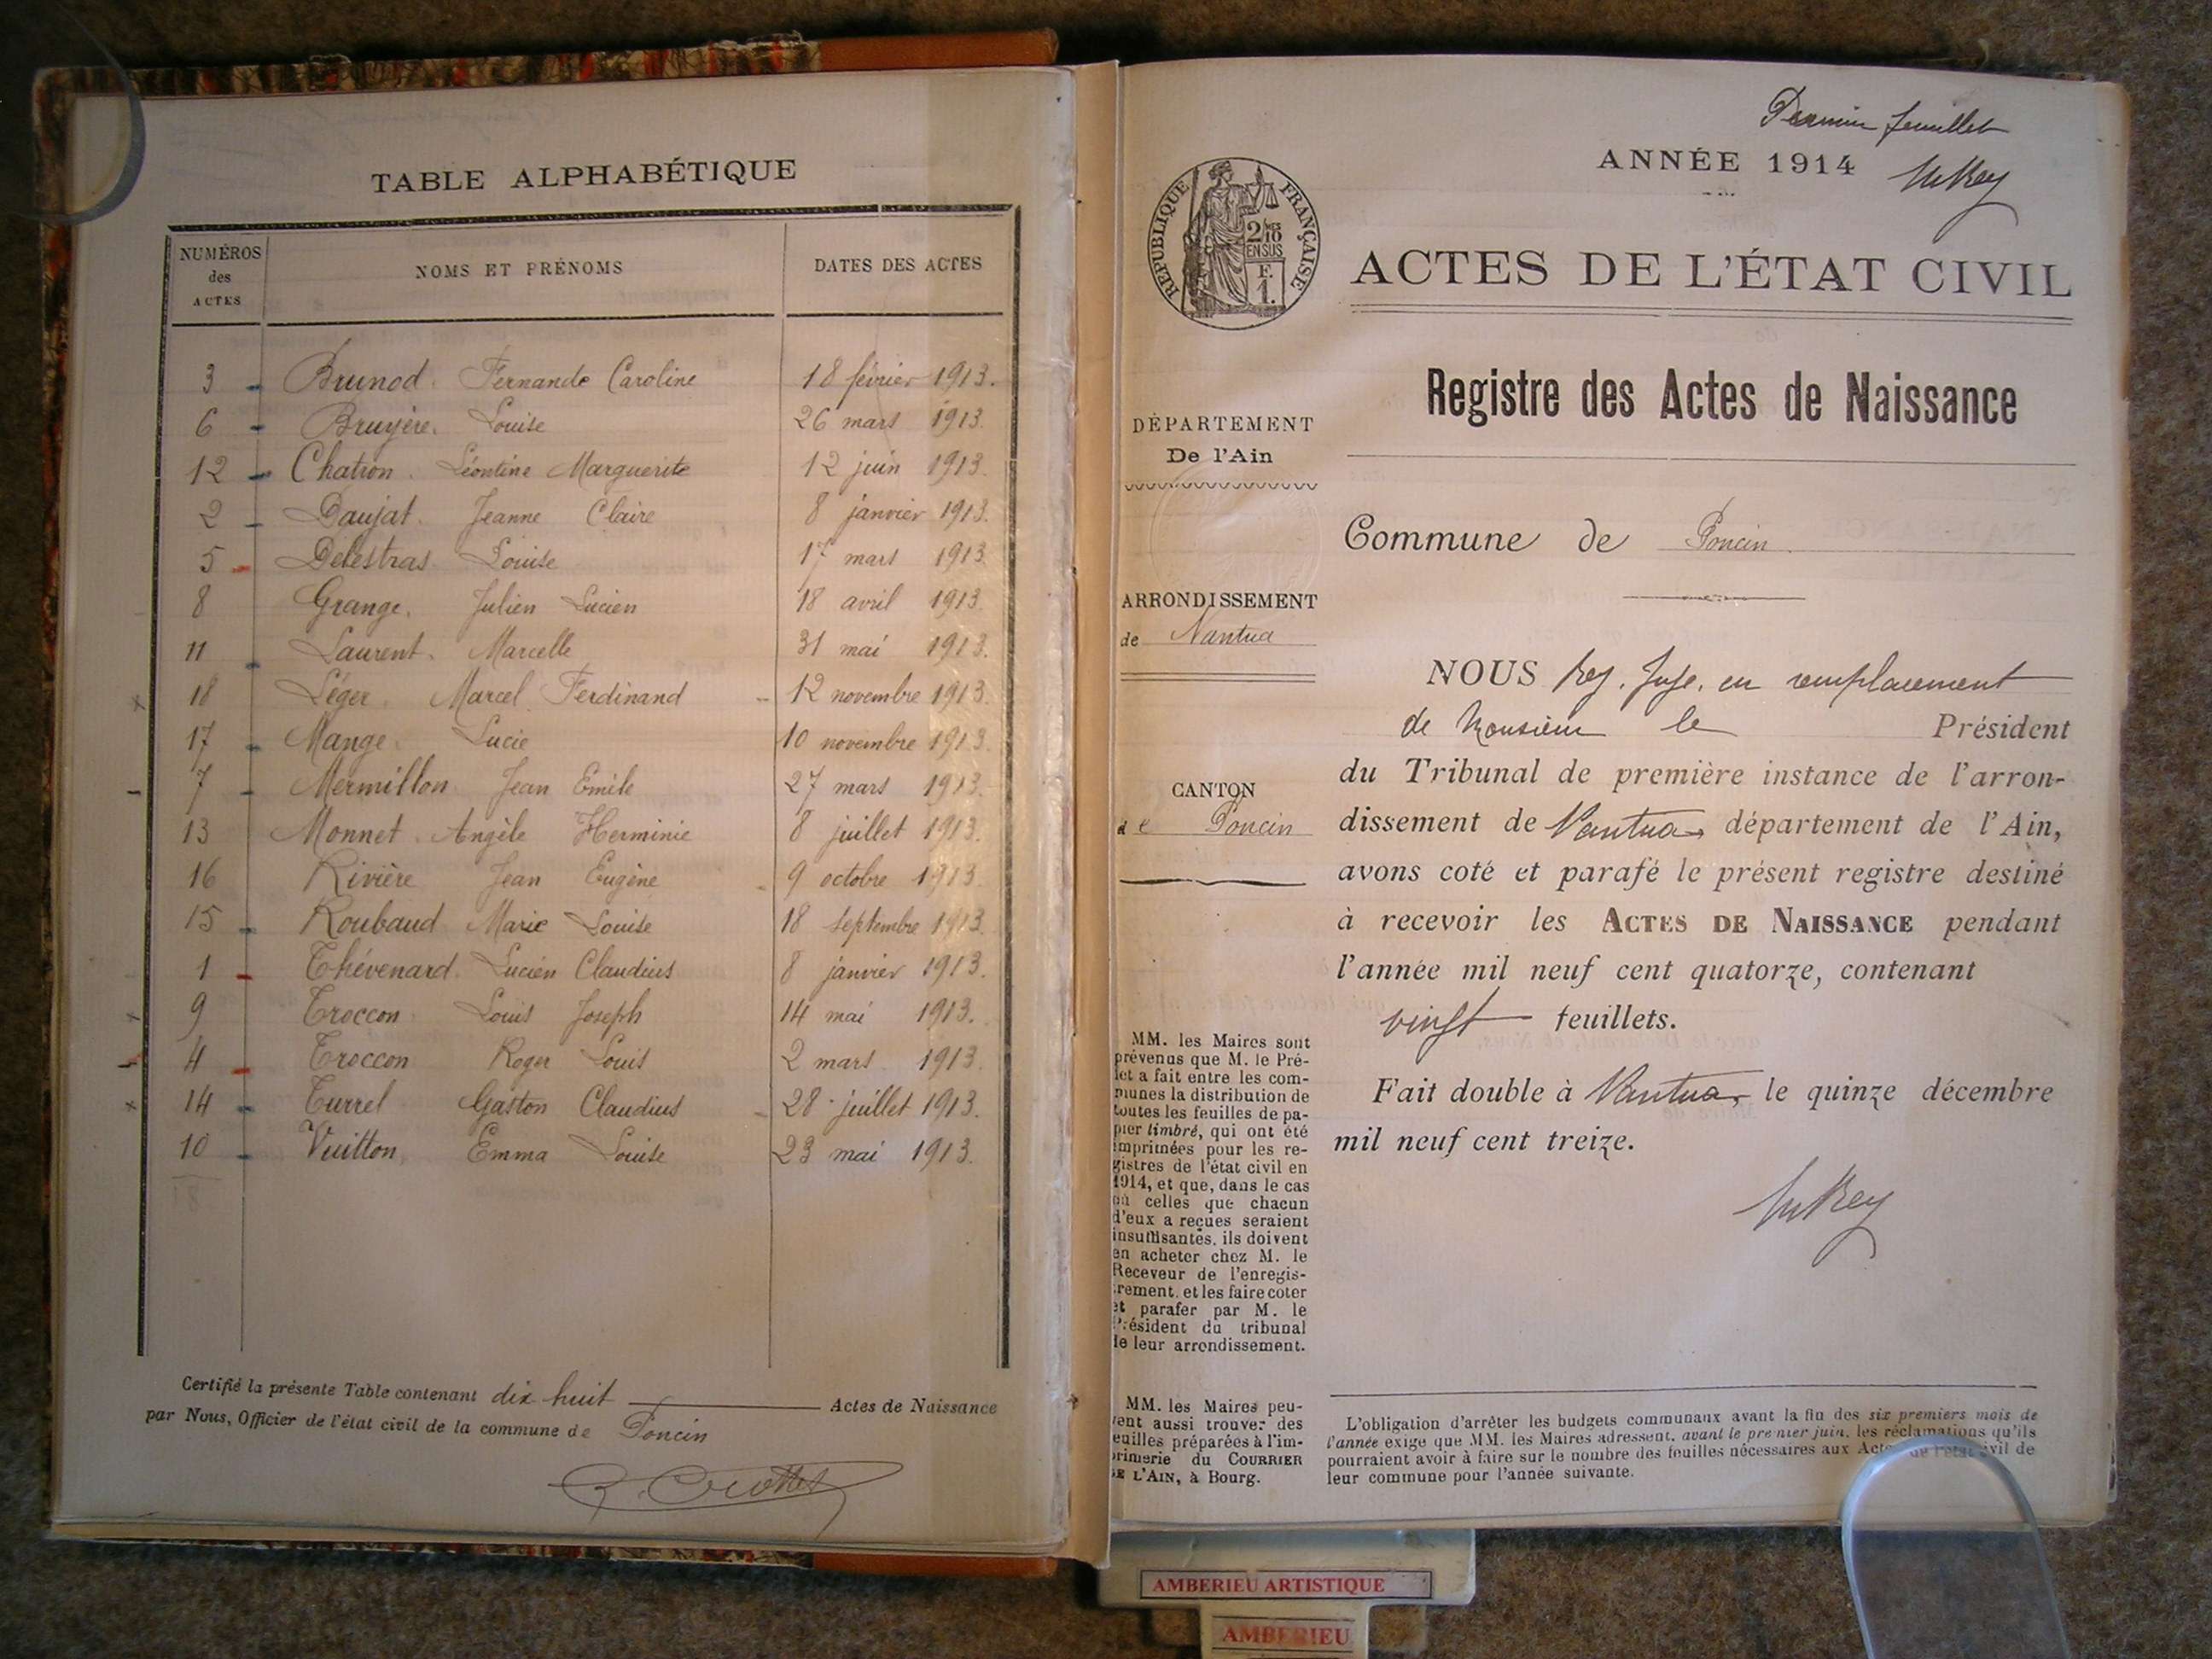 TABLE ALPHABÉTIQUE
NUMÉROS des ACTES
NOMS ET PRÉNOMS
DATES DES ACTES
3 Brunod Fernande Caroline 18 février 1913.
6 Bruyère Louise 26 mars 1913.
12 Chation Léontine Marguerite 12 juin 1913.
2 Daujat Jeanne Claire 8 janvier 1913.
5 Delestras Louise 17 mars 1913
8 Grange Julien Lucien 18 avril 1913.
11 Laurent Marcelle 31 mai 1913.
18 Léger Marcel Ferdinand 12 novembre 1913.
17 Mange Lucie 10 novembre 1913.
7 Mermillon Jean Emile 27 mars 1913.
13 Monnet Angèle Herminie 8 juillet 1913.
16 Rivière Jean Eugène 9 octobre 1913.
15 Roubaud Marie Louise 18 septembre 1913.
1 Thévenard Lucien Claudius 8 janvier 1913.
9 Troccon Louis Joseph 14 mai 1913.
4 Troccon Roger Louis 2 mars 1913.
14 Turrel Gaston Claudius 28 juillet 1913.
10 Vuitton Emma Louise 23 mai 1913.
18
Certifié la présente Table contenant dix huit Actes de Naissance
par Nous, Officier de l'état civil de la commune de Poncin
feuillet
ANNÉE 1914
RÉPUBLIQUE FRANÇAISE
2/10 EN SUS
F. 1.
ACTES DE L'ÉTAT CIVIL
Registre des Actes de Naissance
DÉPARTEMENT
De l'Ain
Commune de Poncin
ARRONDISSEMENT
de Nantua
CANTON
de Poncin
NOUS Rey, Juge, en remplacement
de Monsieur le Président
du Tribunal de première instance de l'arron-
dissement de Nantua, département de l'Ain,
avons coté et parafé le présent registre destiné
à recevoir les ACTES DE NAISSANCE pendant
l'année mil neuf cent quatorze, contenant
vingt feuillets.
Fait double à Nantua, le quinze décembre
mil neuf cent treize.
MRey
MM. les Maires sont
prévenus que M. le Pré-
fet a fait entre les com-
munes la distribution de
toutes les feuilles de pa-
pier timbré, qui ont été
imprimées pour les re-
gistres de l'état civil en
1914, et que, dans le cas
où celles que chacun
d'eux a reçues seraient
insuffisantes, ils doivent
en acheter chez M. le
Receveur de l'enregis-
trement, et les faire coter
et parafer par M. le
Président du tribunal
de leur arrondissement.
MM. les Maires peu-
vent aussi trouver des
feuilles préparées à l'im-
primerie du COURRIER
DE L'AIN, à Bourg.
L'obligation d'arrêter les budgets communaux avant la fin des six premiers mois de
l'année exige que MM. les Maires adressent, avant le premier juin, les réclamations qu'ils
pourraient avoir à faire sur le nombre des feuilles nécessaires aux Actes de l'état civil de
leur commune pour l'année suivante.
AMBERIEU ARTISTIQUE
AMBERIEU